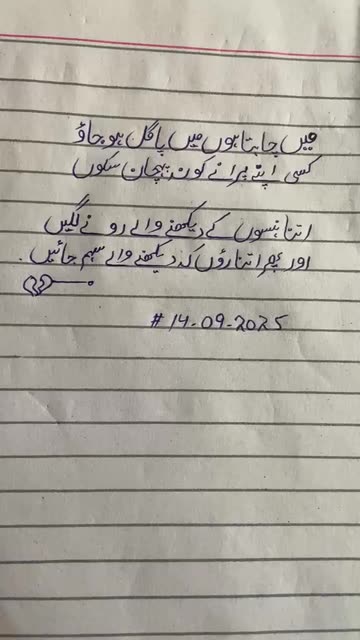 میں چاہتا ہوں میں پاگل ہو جاؤ
کسی اپنے پرائے کو نہ پہچان سکوں
اتنا ہنسوں کے دیکھنے والے رونے لگیں
اور پھر اتنا روں کہ دیکھنے والے سہم جائیں .
# 14-09-2025